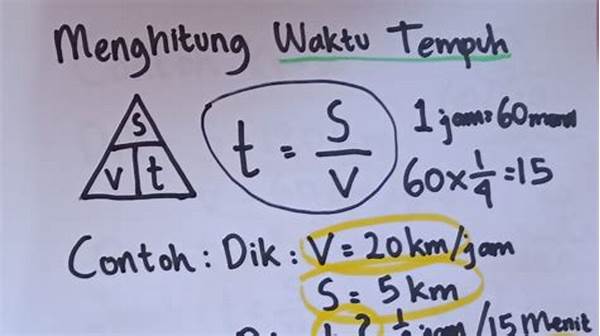 Menghitung Waktu Tempuh
S
V t
t = S/V
1 jam = 60 menit
60 x 1/4 = 15
Contoh : Dik : V = 20 km/jam
S = 5 km
t ? 1/4 jam/15 Menit